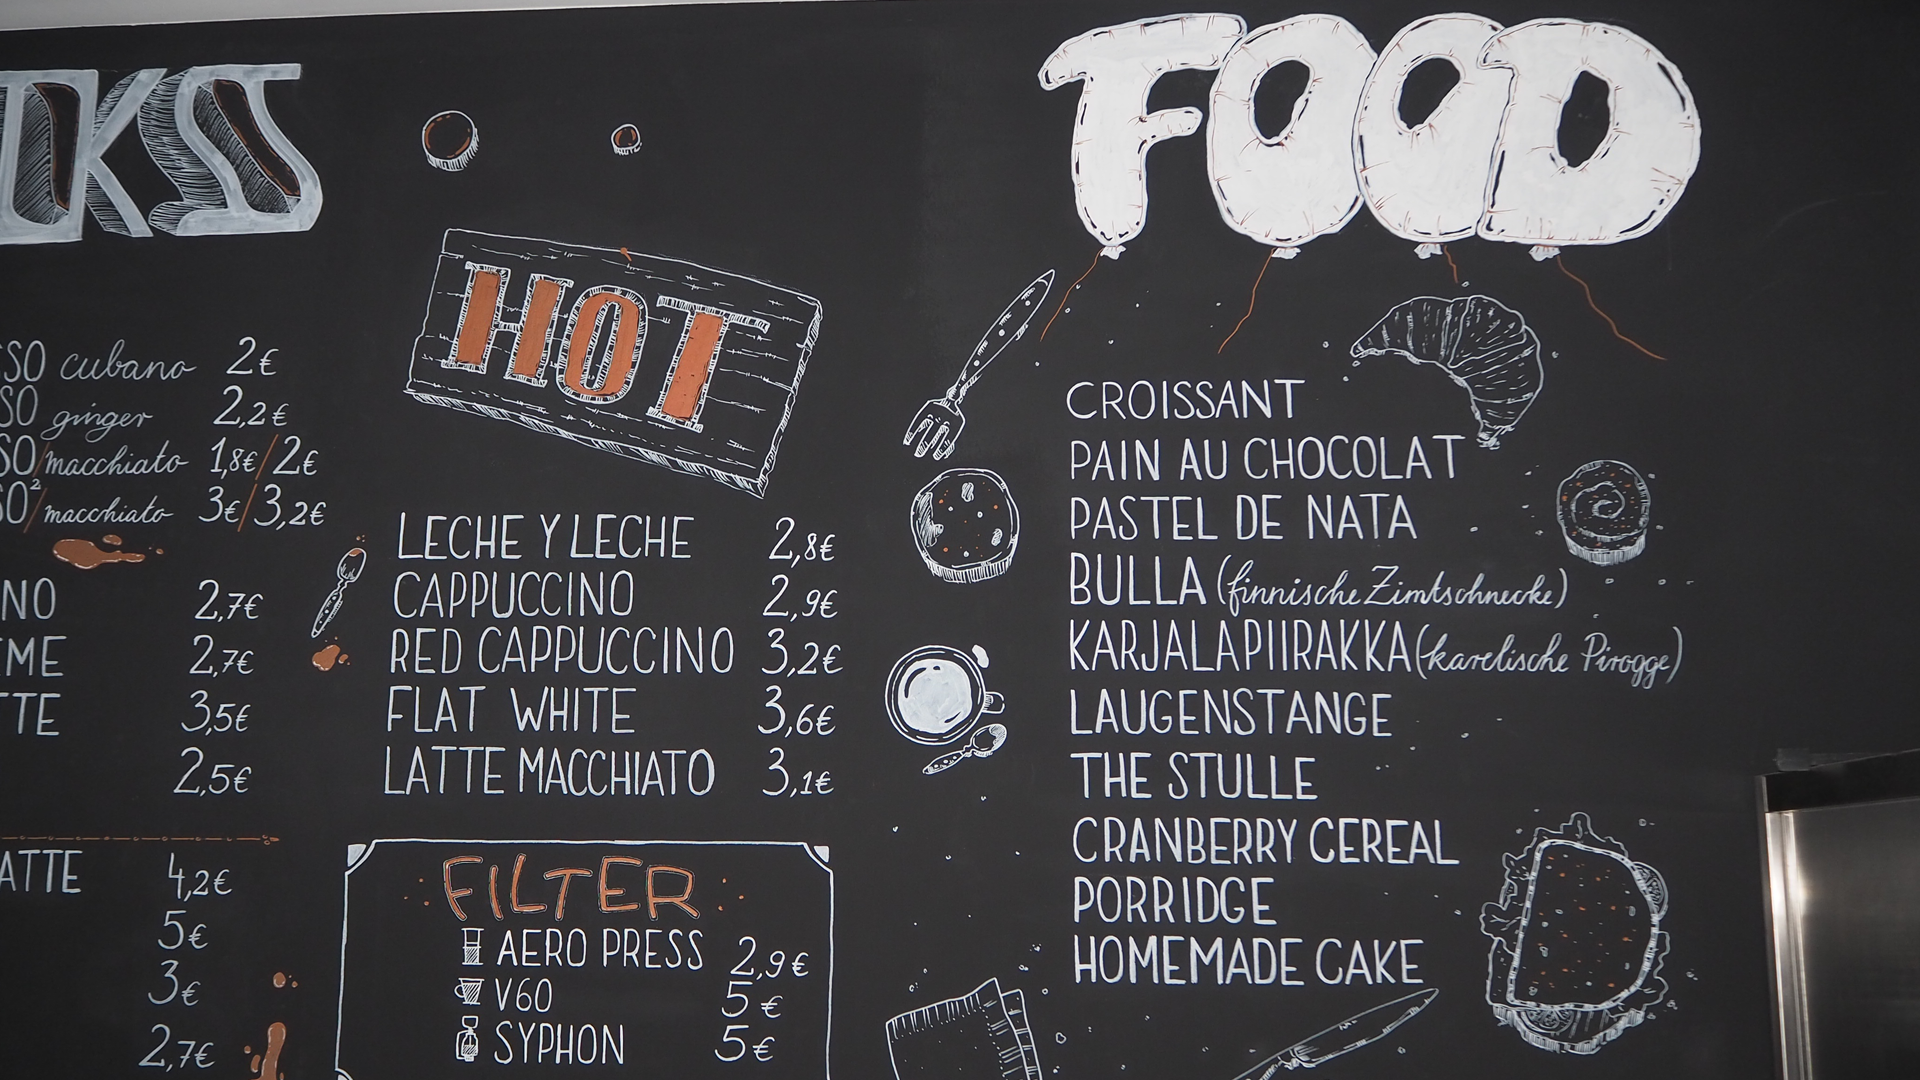 FOOD
cubano 2€
ginger 2,2€
macchiato 1,8€/2€
macchiato 3€/3,2€
2,7€
2,7€
3,5€
2,5€
4,2€
5€
3€
2,7€
HOT
LECHE Y LECHE 2,8€
CAPPUCCINO 2,9€
RED CAPPUCCINO 3,2€
FLAT WHITE 3,6€
LATTE MACCHIATO 3,1€
FILTER
AERO PRESS 2,9€
V60 5€
SYPHON 5€
CROISSANT
PAIN AU CHOCOLAT
PASTEL DE NATA
BULLA (finnische Zimtschnecke)
KARJALAPIIRAKKA (karelische Pirogge)
LAUGENSTANGE
THE STULLE
CRANBERRY CEREAL
PORRIDGE
HOMEMADE CAKE